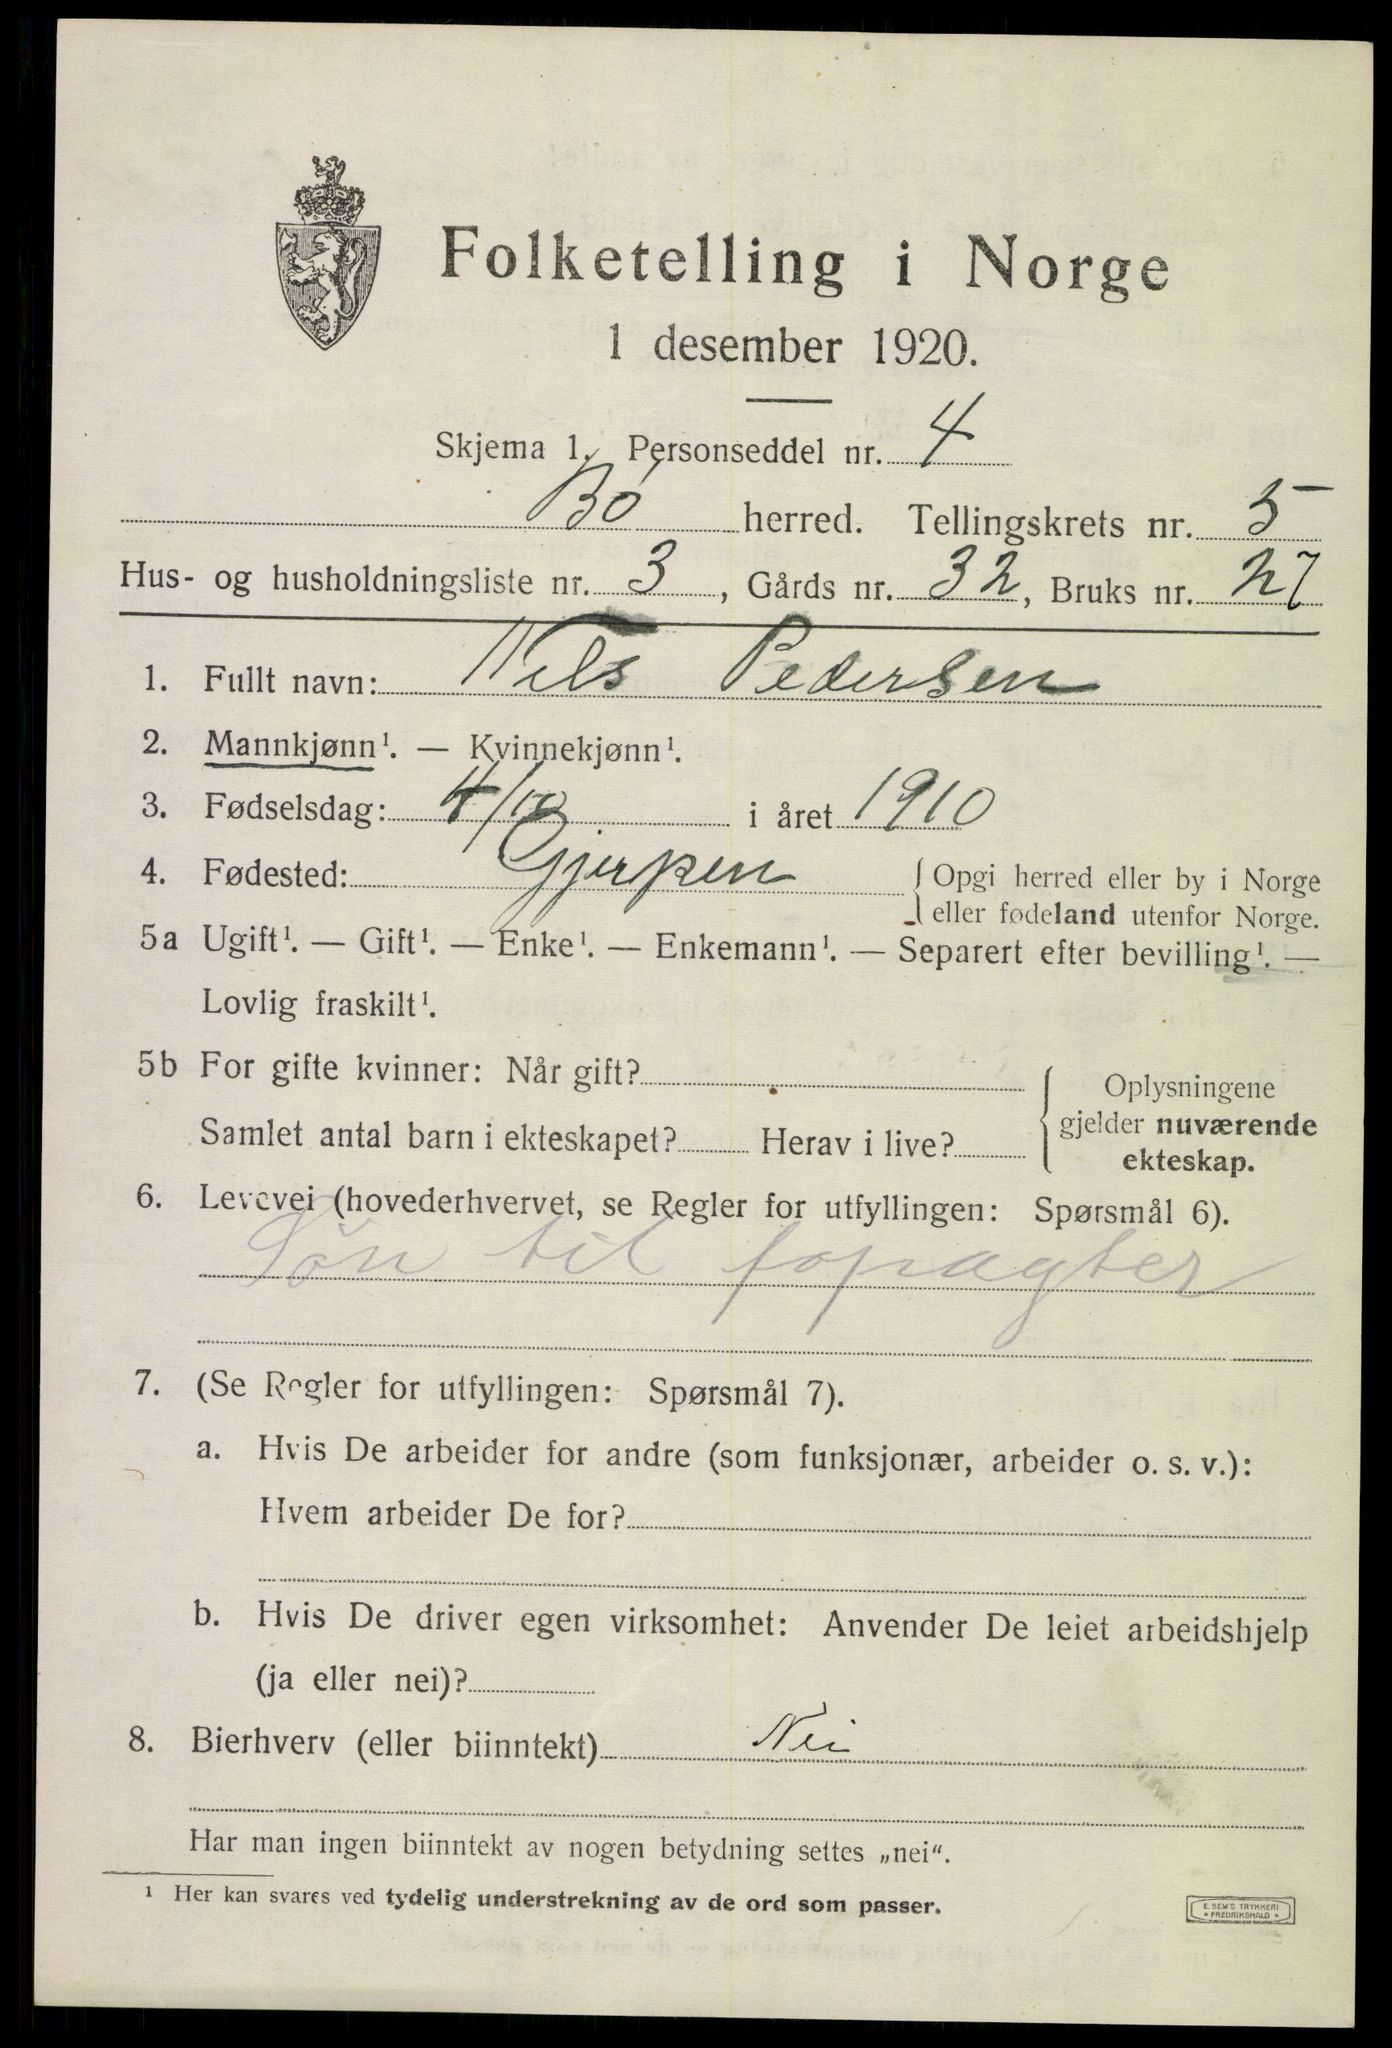 Folketelling i Norge
1 desember 1920.
Skjema 1. Personseddel nr. 4
Bö herred. Tellingskrets nr. 5
Hus- og husholdningsliste nr. 3, Gårds nr. 32, Bruks nr. 27
1. Fullt navn: Nels Pedersen
2. Mannkjønn¹. — Kvinnekjønn¹.
3. Fødselsdag: 4/10 i året 1910
4. Fødested: Gjerpen { Opgi herred eller by i Norge
eller fødeland utenfor Norge.
5a Ugift¹. — Gift¹. — Enke¹. — Enkemann¹. — Separert efter bevilling¹. —
Lovlig fraskilt¹.
5b For gifte kvinner: Når gift?
Samlet antal barn i ekteskapet? Herav i live? { Oplysningene
gjelder nuværende
ekteskap.
6. Levevei (hovederhvervet, se Regler for utfyllingen: Spørsmål 6).
Sön til fopagter
7. (Se Regler for utfyllingen: Spørsmål 7).
a. Hvis De arbeider for andre (som funksjonær, arbeider o. s. v.):
Hvem arbeider De for?
b. Hvis De driver egen virksomhet: Anvender De leiet arbeidshjelp
(ja eller nei)?
8. Bierhverv (eller biinntekt) Nei
Har man ingen biinntekt av nogen betydning settes „nei“.
¹ Her kan svares ved tydelig understrekning av de ord som passer.
E. SEM'S TRYKKERI
• FREDRIKSHALD •